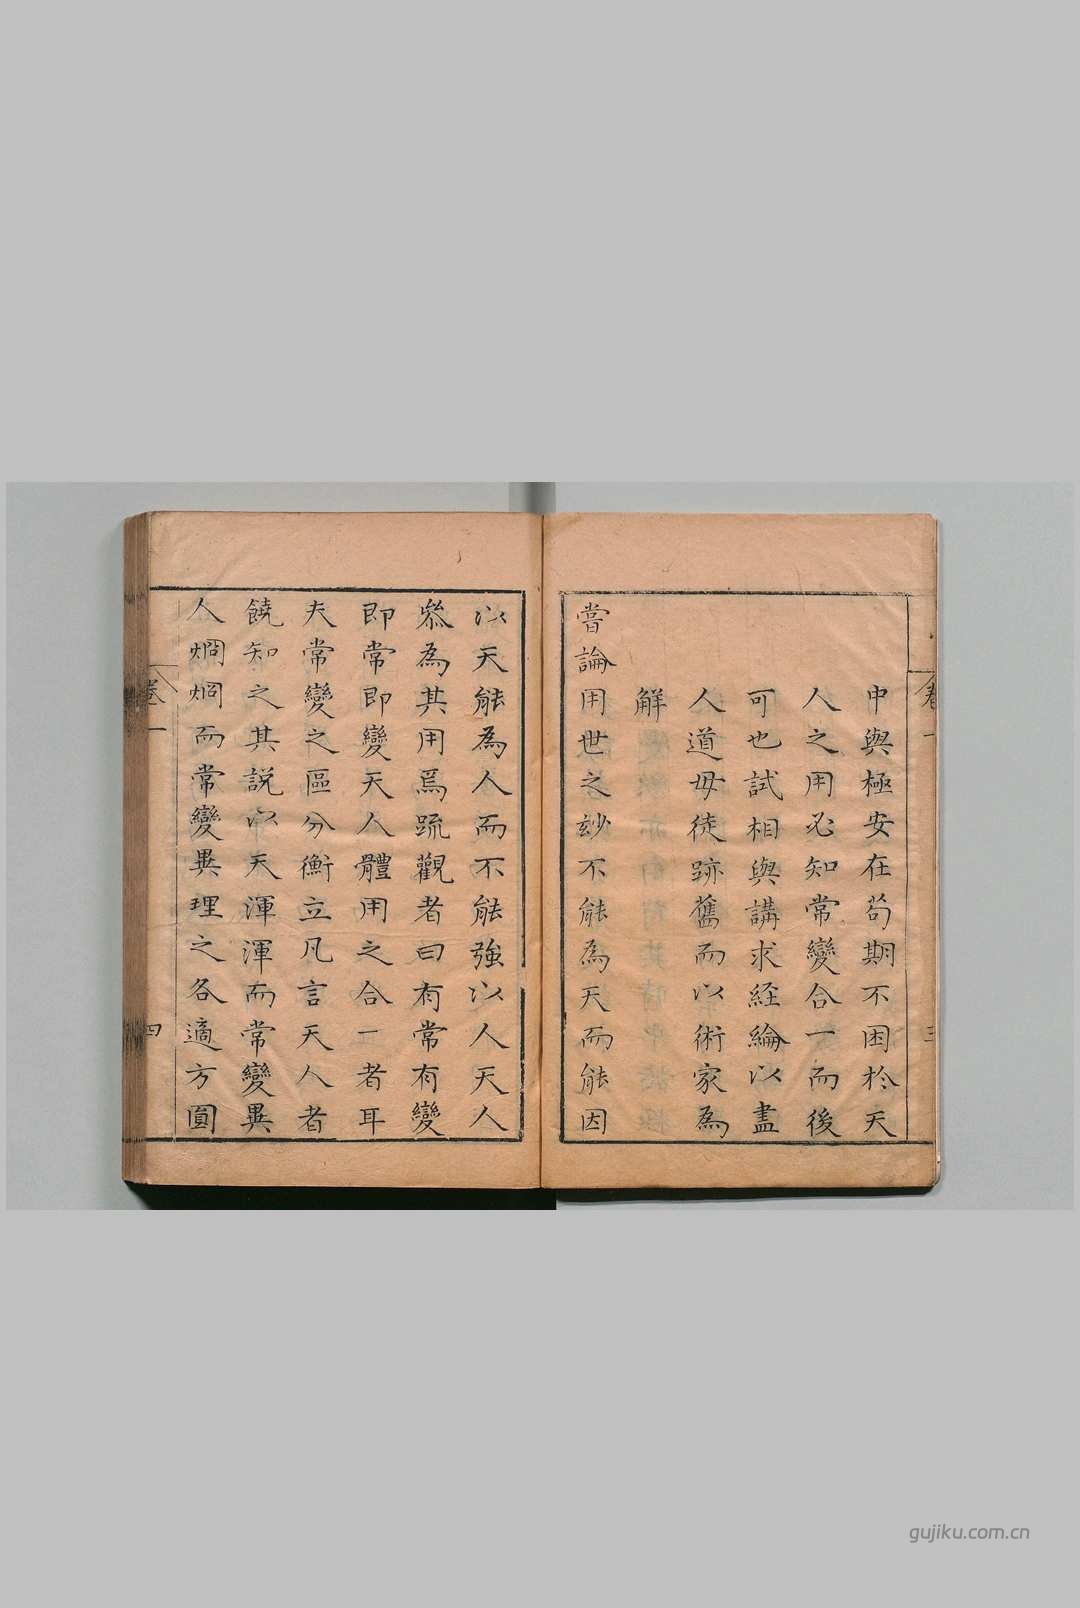 中與極安在苟期不困於天
人之用必知常變合一而後
可也試相與講求経綸以盡
人道毋徒跡舊而以術家為
解
嘗論用世之玅不能為天而能因
以天能為人而不能強以人天人
叅為其用焉疏觀者曰有常有變
即常即變天人體用之合一者耳
夫常變之區分衡立凡言天人者
饒知之其説以天渾渾而常變異
人烱烱而常變異理之各適方圓
卷一
四
gujiku.com.cn